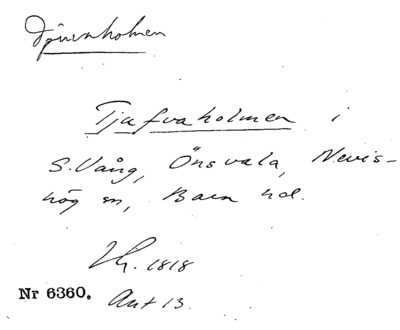 Djurvaholmen
Tjufvaholmen i
S. Vång, Önsvala, Nevis-
hög sn, Bara hd.
1818
Nr 6360. Ant 13.